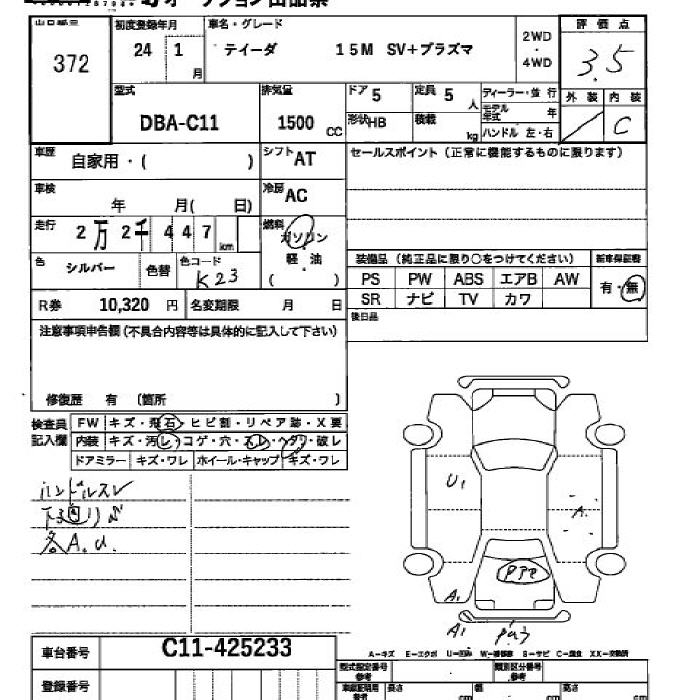 オークション出品票
372
初度登録年月 車名・グレード 2WD・4WD 評価点
24 1月 ティーダ 15M SV+プラズマ 3.5
型式 排気量 ドア 5 定員 5人 ディーラー・並行 外装 内装
DBA-C11 1500 CC 形状 HB 積載 kg モデル年式 年 ハンドル 左・右 C
車歴 自家用・( ) シフト AT セールスポイント (正常に機能するものに限ります)
車検 年 月( 日) 冷房 AC
走行 2万2千447km 燃料 ガソリン
色 シルバー 色替 色コード K23 軽・油 ( )
装備品 (純正品に限り○をつけてください) 新車保証書
PS PW ABS エアB AW 有・無
SR ナビ TV カワ
R券 10,320 円 名変期限 月 日
後日品
注意事項申告欄 (不具合内容等は具体的に記入して下さい)
修復歴 有 (箇所 )
検査員記入欄 FW キズ・飛石・ヒビ割・リペア跡・X要
内装 キズ・汚レ・コゲ・穴・スレ・ヘタリ・破レ
ドアミラー キズ・ワレ ホイール・キャップ キズ・ワレ
ハンドルスレ
下廻りサビ
各A.U.
U1
A.
A1
A1
車台番号 C11-425233
A-キズ E-エクボ U-凹み W-補修跡 S-サビ C-腐食 XX-交換済
登録番号 型式指定番号 参考 類別区分番号 参考
車庫証明用 参考 長さ cm 幅 cm 高さ cm